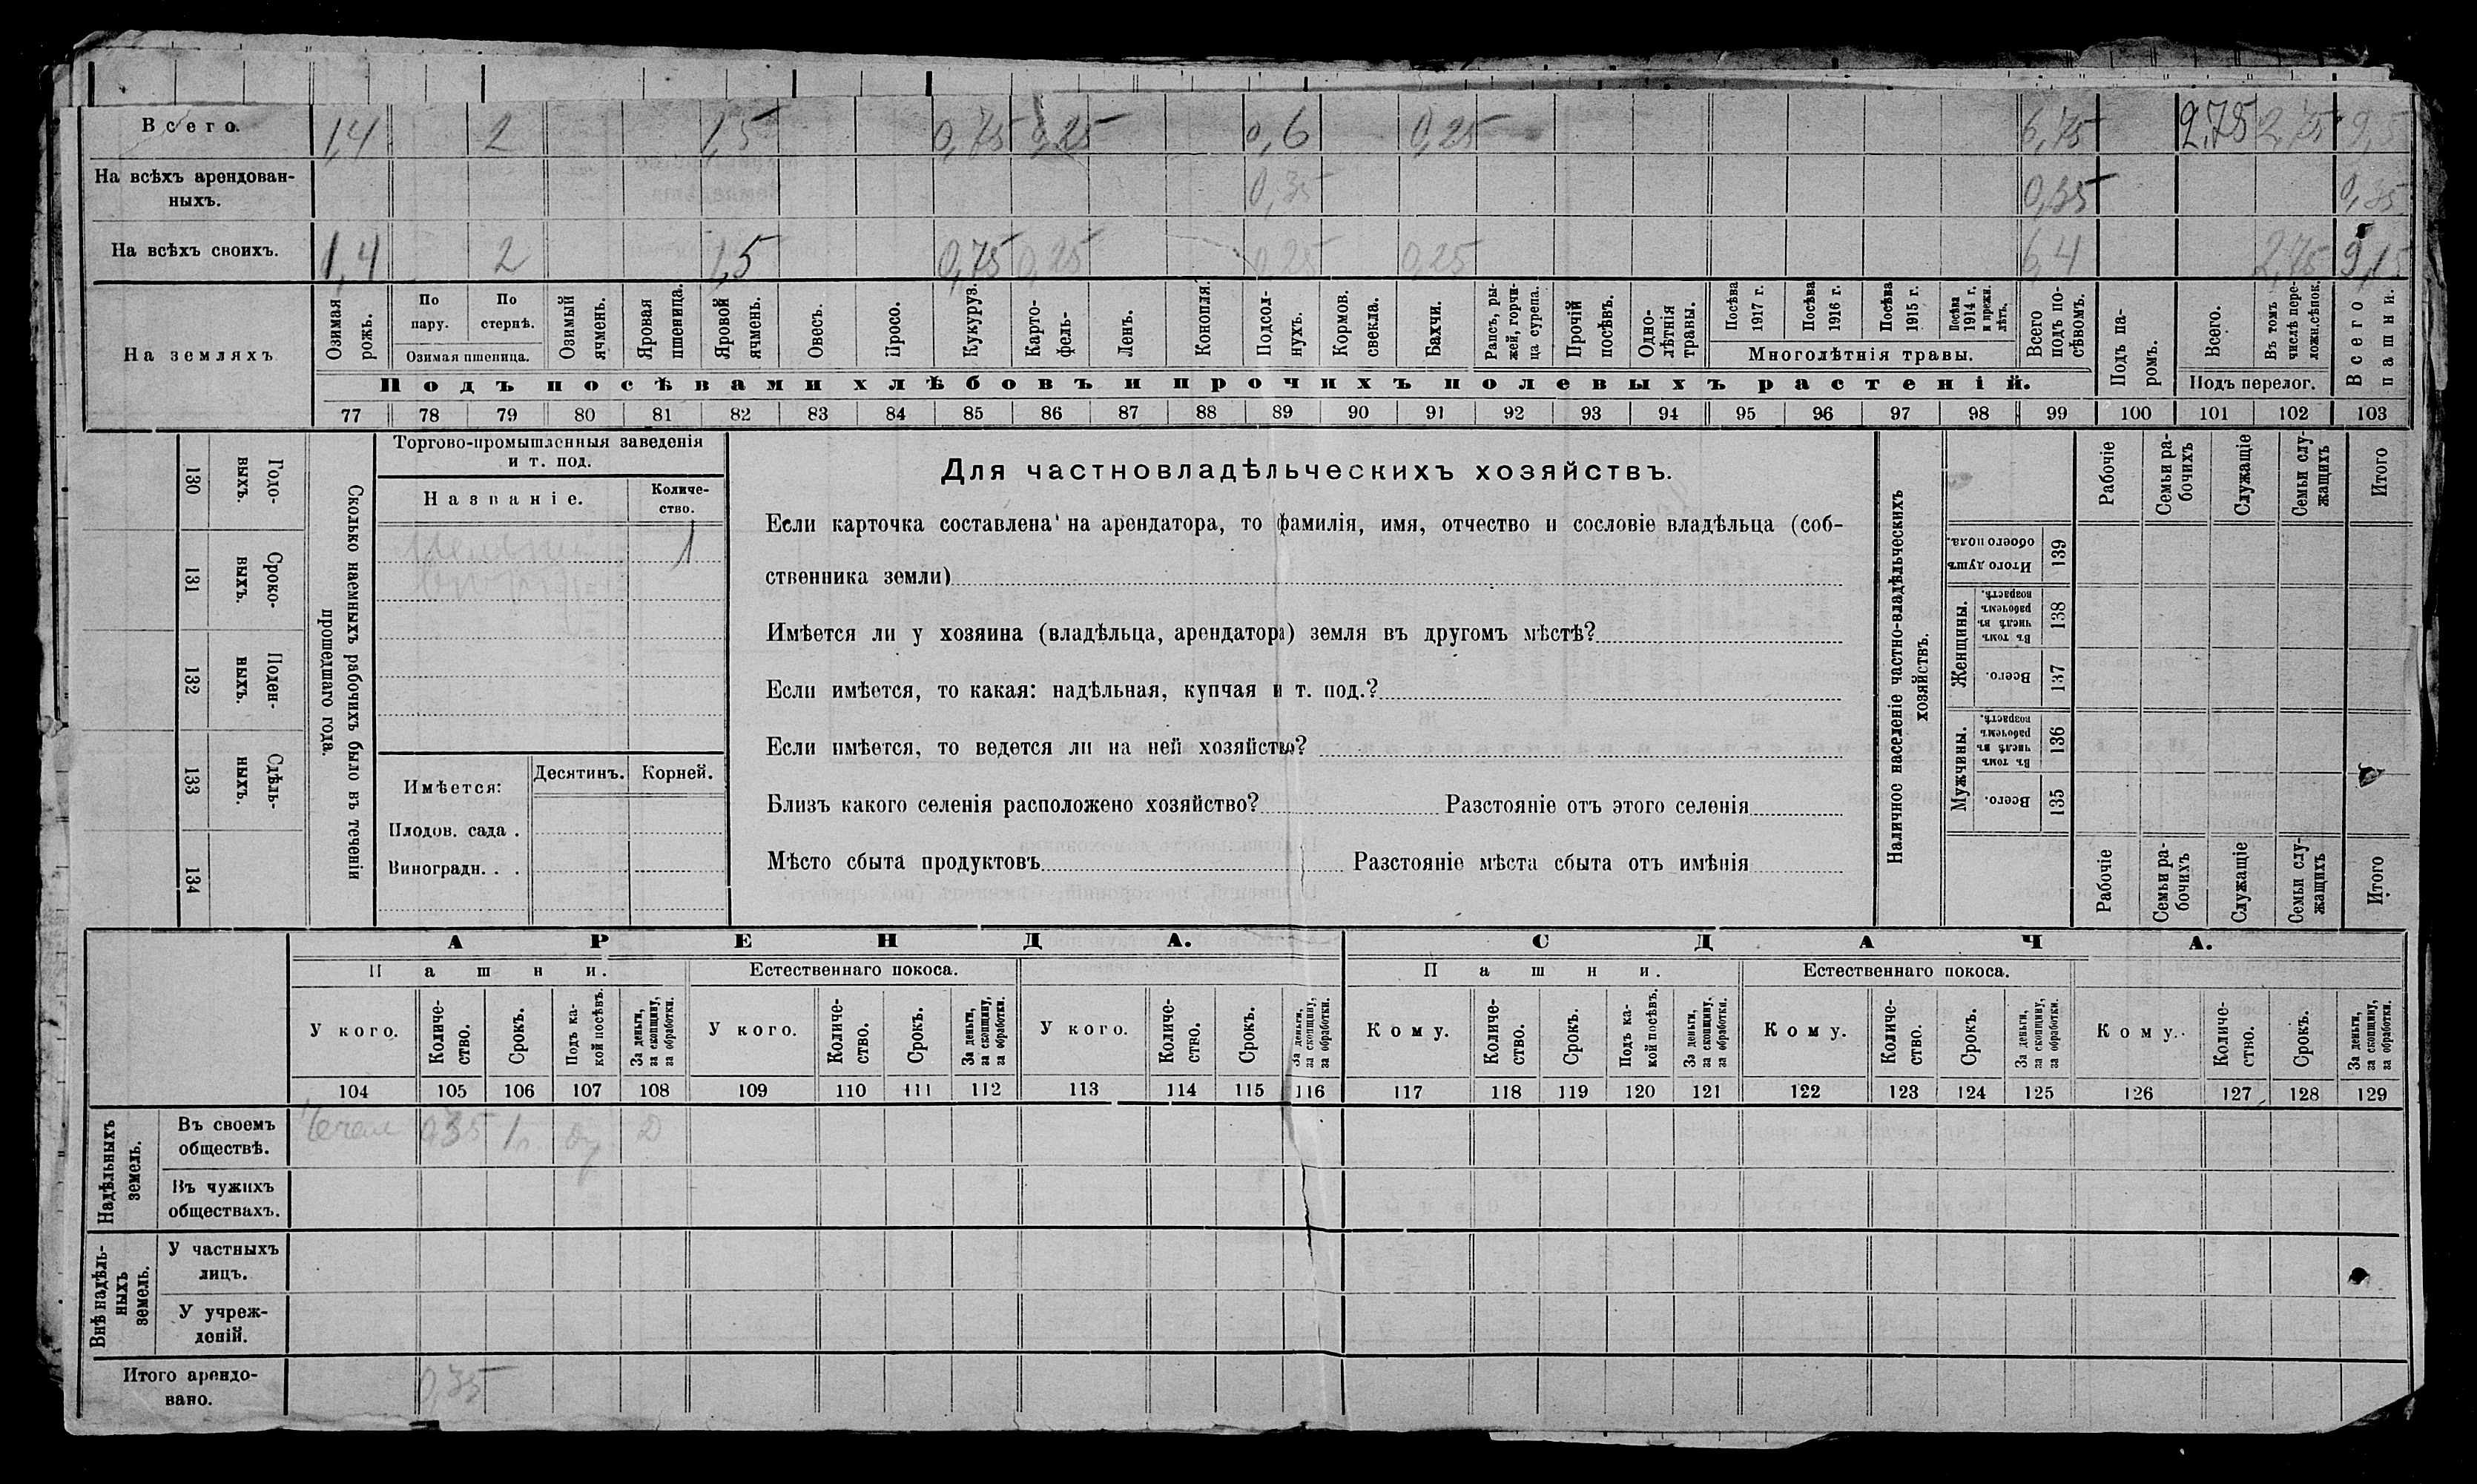 Всего. 1,4 2 1,5 0,75 0,25 0,6 0,25 6,75 2,75 2,75 9,5
На всѣхъ арендован-
ныхъ. 0,35 0,35 0,35
На всѣхъ своихъ. 1,4 2 1,5 0,75 0,25 0,25 0,25 6,4 2,75 9,15
На земляхъ
Озимая рожь.
По пару.
По стернѣ.
Озимая пшеница.
Озимый ячмень.
Яровая пшеница.
Яровой ячмень.
Овесъ.
Просо.
Кукуруз.
Карто-
фель-
Ленъ.
Конопля.
Подсол-
нухъ.
Кормов. свекла.
Бахчи.
Рапсъ, ры-
жей, горчи-
ца сурепа.
Прочій посѣвъ.
Одно-
лѣтнія
травы.
Посѣва 1917 г.
Посѣва 1916 г.
Посѣва 1915 г.
Посѣва 1914 г. и прежн. лѣтъ.
Многолѣтнія травы.
Всего подъ по-
сѣвомъ.
Подъ посѣвами хлѣбовъ и прочихъ полевыхъ растеній.
Подъ па-
ромъ.
Всего.
Въ томъ числѣ пере-
ложн. сѣнокос.
Подъ перелог.
Всего пашни.
77 78 79 80 81 82 83 84 85 86 87 88 89 90 91 92 93 94 95 96 97 98 99 100 101 102 103
Годо-
выхъ.
130
Сроко-
выхъ.
131
Поден-
ныхъ.
132
Сдѣль-
ныхъ.
133
134
Сколько наемныхъ рабочихъ было въ теченіи
прошедшаго года.
Торгово-промышленныя заведенія
и т. под.
Названіе.
Количе-
ство.
1
Имѣется:
Десятинъ.
Корней.
Плодов. сада .
Виноградн. . .
Для частновладѣльческихъ хозяйствъ.
Если карточка составлена на арендатора, то фамилія, имя, отчество и сословіе владѣльца (соб-
ственника земли)
Имѣется ли у хозяина (владѣльца, арендатора) земля въ другомъ мѣстѣ?
Если имѣется, то какая: надѣльная, купчая и т. под.?
Если имѣется, то ведется ли на ней хозяйство?
Близъ какого селенія расположено хозяйство? Разстояніе отъ этого селенія
Мѣсто сбыта продуктовъ Разстояніе мѣста сбыта отъ имѣнія
Наличное населеніе частно-владѣльческихъ
хозяйствъ.
Рабочіе
Семьи ра-
бочихъ
Служащіе
Семьи слу-
жащихъ
Итого
Итого душъ
обоего пола.
139
Женщины.
Въ томъ
числѣ въ
рабочемъ
возрастѣ.
138
Всего.
137
Мужчины.
Въ томъ
числѣ въ
рабочемъ
возрастѣ.
136
Всего.
135
Рабочіе
Семьи ра-
бочихъ
Служащіе
Семьи слу-
жащихъ
Итого
АРЕНДА.
СДАЧА.
Пашни.
Естественнаго покоса.
Пашни.
Естественнаго покоса.
У кого.
Количе-
ство.
Срокъ.
Подъ ка-
кой посѣвъ.
За деньги,
за скопщину,
за обработки.
У кого.
Количе-
ство.
Срокъ.
За деньги,
за скопщину,
за обработки.
У кого.
Количе-
ство.
Срокъ.
За деньги,
за скопщину,
за обработки.
Кому.
Количе-
ство.
Срокъ.
Подъ ка-
кой посѣвъ.
За деньги,
за скопщину,
за обработки.
Кому.
Количе-
ство.
Срокъ.
За деньги,
за скопщину,
за обработки.
Кому.
Количе-
ство.
Срокъ.
За деньги,
за скопщину,
за обработки.
104 105 106 107 108 109 110 111 112 113 114 115 116 117 118 119 120 121 122 123 124 125 126 127 128 129
Надѣльныхъ
земель.
Въ своемъ
обществѣ.
0,35 Д
Въ чужихъ
обществахъ.
Внѣ надѣль-
ныхъ
земель.
У частныхъ
лицъ.
У учреж-
деній.
Итого арендо-
вано.
0,35